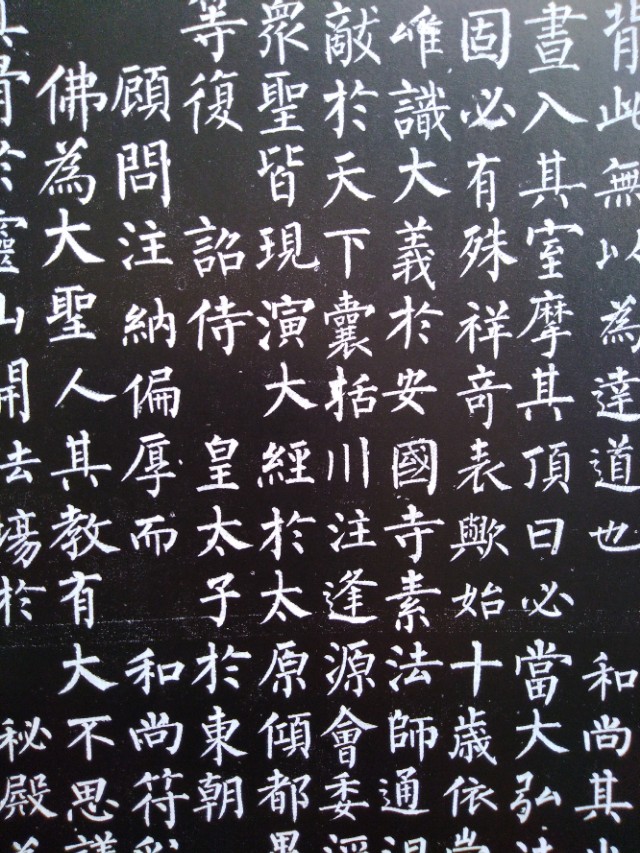 背此無以為達道也　和尚其
晝入其室摩其頂曰必當大弘法
固必有殊祥奇表歟始十歲依
唯識大義於安國寺素法師通
敵於天下囊括川注逢源會委
衆聖皆現演大經於太原傾都畢
等復　詔侍　皇太子於東朝
顧問注納偏厚而　和尚符彩
佛為大聖人其教有大不思議
真骨於靈山開法場於　秘殿為